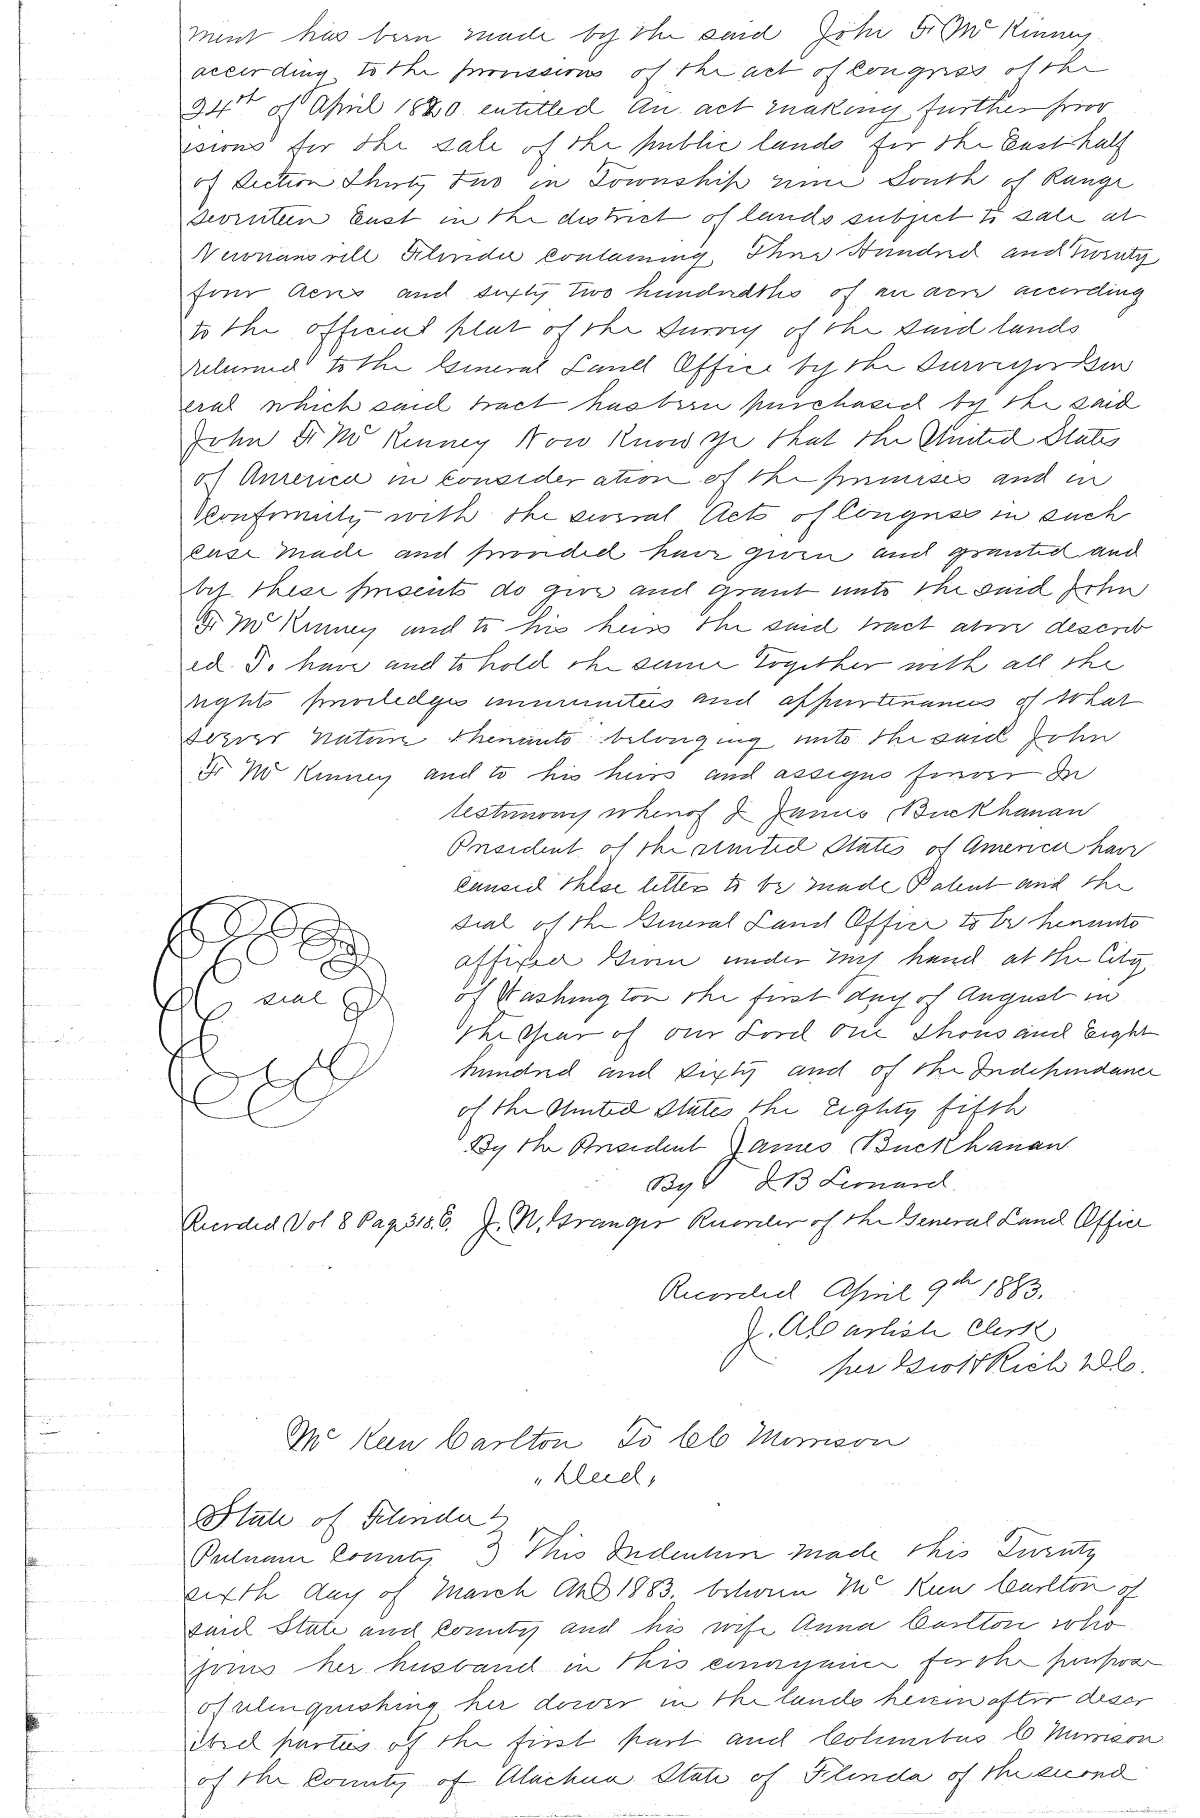 ment has been made by the said John F. McKinney
according to the provissions of the act of Congress of the
24th of April 1820 entitled An act making further prov
isions for the sale of the public lands for the East half
of Section Thirty Two in Township nine South of Range
Seventeen East in the district of lands subject to sale at
Newnansvill Florida containing Three Hundred and Twenty
four Acres and sixty two hundredths of an acre according
to the official plat of the Survey of the said lands
returned to the General Land Office by the Surveyor Gen
eral which said tract has been purchased by the said
John F. McKenney Now Know ye that the United States
of America in consideration of the premises and in
Conformity with the several Acts of Congress in such
case made and provided have given and granted and
by these presents do give and grant unto the said John
F. McKinney and to his heirs the said tract above describ
ed. To have and to hold the same Together with all the
rights priviledges immunities and appurtenances of What
soever nature thereunto belonging unto the said John
F. McKinney and to his heirs and assigns forever In
testimony whereof I James Buckhanan
President of the United States of America have
caused these letters to be made Patent and the
seal of the General Land Office to be hereunto
affixed Given under my hand at the City
seal
of Washington the first day of August in
the Year of our Lord One Thousand Eight
hundred and sixty and of the Independance
of the United States the Eighty fifth
By the President James Buckhanan
By J B Leonard
Recorded Vol 8 Pag 318.6. J. N. Granger Recorder of the General Land Office
Recorded April 9th 1883.
J. A Carlisle Clerk
per Rich D.C.
McKeen Carlton To C C Morrison
"Deed"
State of Florida }
Putnam County } This Indenture made this Twenty
sixth day of March AD 1883 between McKeen Carlton of
said State and County and his wife Anna Carlton who
joins her husband in this conveyance for the purpose
of relinquishing her dower in the lands herein after descr
ibed parties of the first part and Columbus C Morrison
of the County of Alachua State of Florida of the second